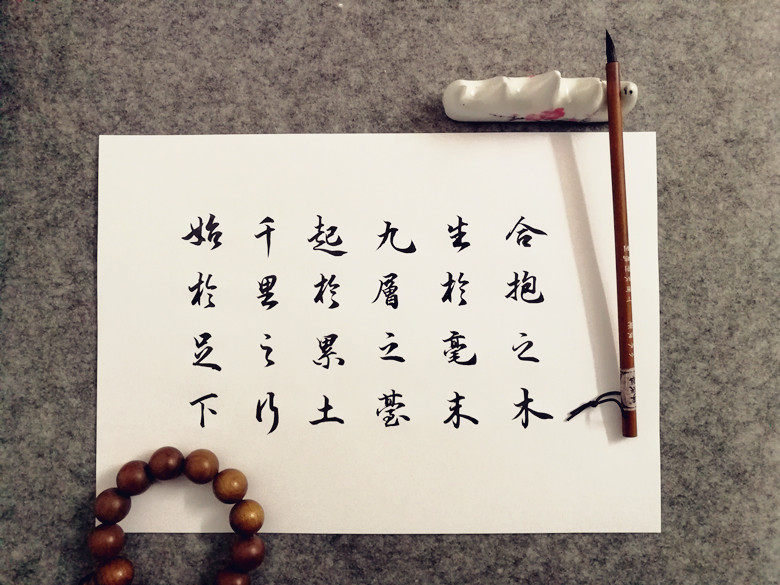 合抱之木
生於毫末
九層之臺
起於累土
千里之行
始於足下